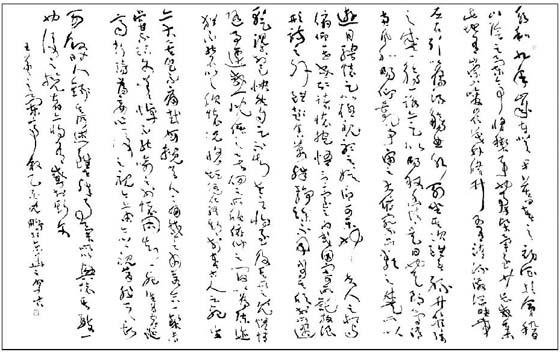 永和九年歲在癸丑暮春之初會於會稽
山陰之蘭亭修禊事也群賢畢至少長咸集
此地有崇山峻嶺茂林修竹又有清流激湍映帶
左右引以為流觴曲水列坐其次雖無絲竹管弦
之盛一觴一詠亦足以暢敘幽情是日也天朗氣清
惠風和暢仰觀宇宙之大俯察品類之盛所以
遊目騁懷足以極視聽之娛信可樂也夫人之相與
俯仰一世或取諸懷抱悟言一室之內或因寄所託放浪
形骸之外雖趣舍萬殊靜躁不同當其欣於所遇
暫得於己快然自足不知老之將至及其所之既倦情
隨事遷感慨係之矣向之所欣俛仰之間以為陳迹
猶不能不以之興懷況修短隨化終期於盡古人云死生
亦大矣豈不痛哉每攬昔人興感之由若合一契未
嘗不臨文嗟悼不能喻之於懷固知一死生為虛誕
齊彭殤為妄作後之視今亦由今之視昔悲夫故
列敘時人錄其所述雖世殊事異所以興懷其致一
也後之攬者亦將有感於斯文
王羲之蘭亭敘